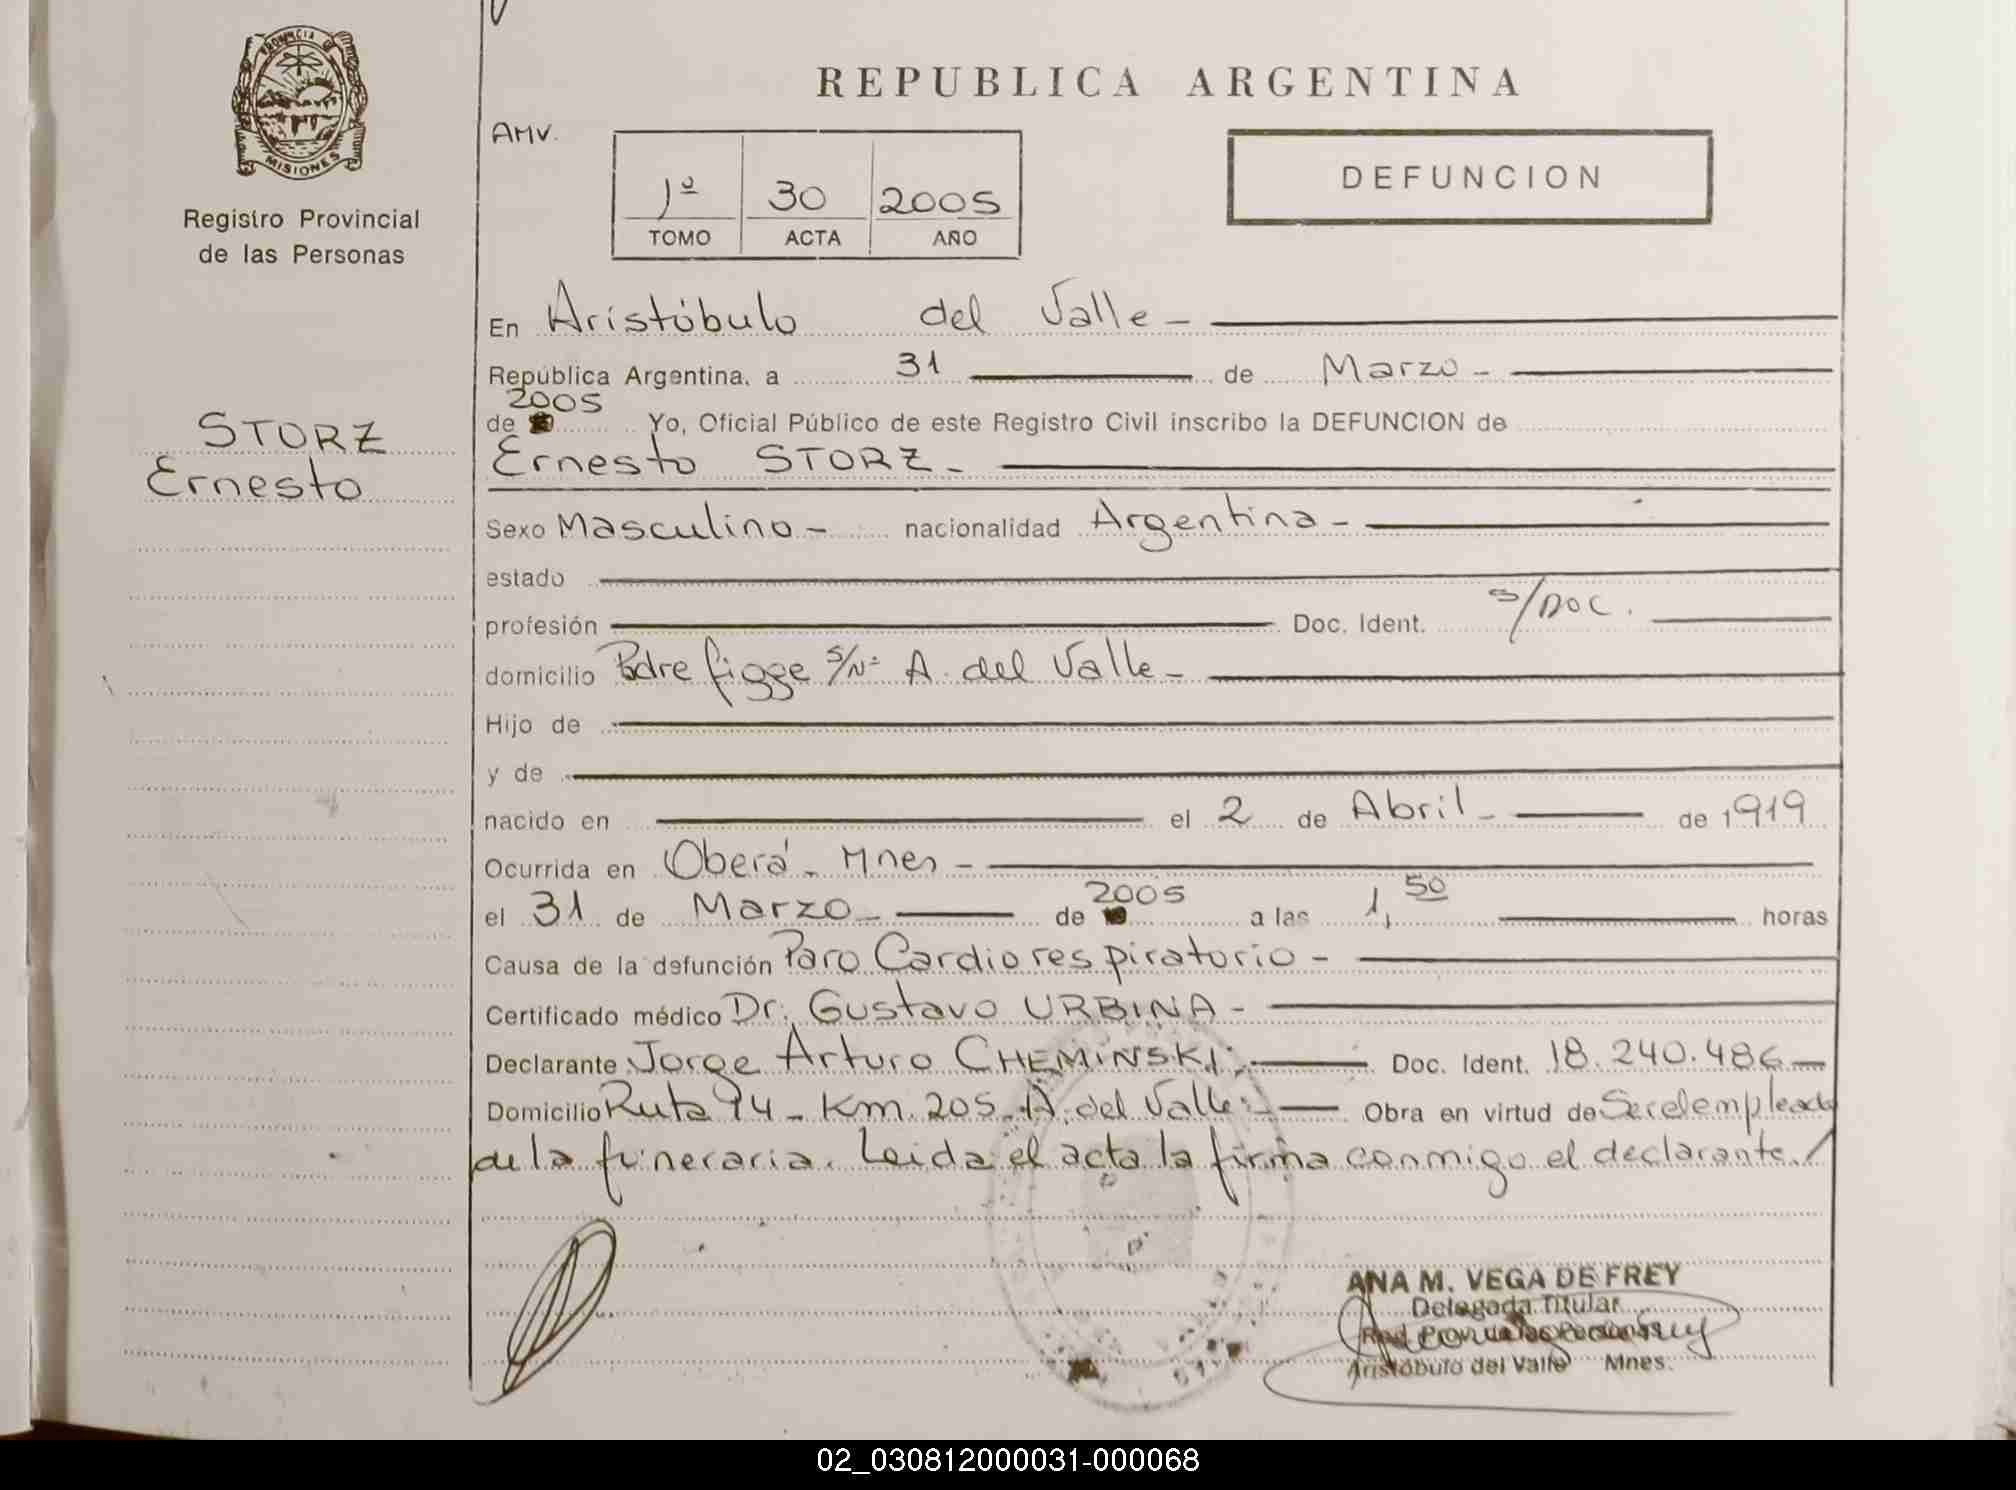 PROVINCIA DE
MISIONES
Registro Provincial
de las Personas
STORZ
Ernesto
REPUBLICA ARGENTINA
AMV.
1º 30 2005
TOMO ACTA AÑO
DEFUNCION
En Aristóbulo del Valle -
República Argentina, a 31 de Marzo -
2005
de Yo, Oficial Público de este Registro Civil inscribo la DEFUNCION de
Ernesto STORZ -
Sexo Masculino - nacionalidad Argentina -
estado
profesión Doc. Ident. S/DOC.
domicilio Padre Figge S/Nº A. del Valle -
Hijo de
y de
nacido en el 2 de Abril - de 1919
Ocurrida en Oberá - Mnes -
el 31 de Marzo - de 2005 a las 1,50 horas
Causa de la defunción Paro Cardiorespiratorio -
Certificado médico Dr. Gustavo URBINA -
Declarante Jorge Arturo CHEMINSKI; Doc. Ident. 18.240.486 -
Domicilio Ruta 14 - Km. 205 - A. del Valle; Obra en virtud de Ser el empleado
de la funeraria. Leida el acta la firma conmigo el declarante./
ANA M. VEGA DE FREY
Delegada Titular
Aristóbulo del Valle Mnes.
02_030812000031-000068